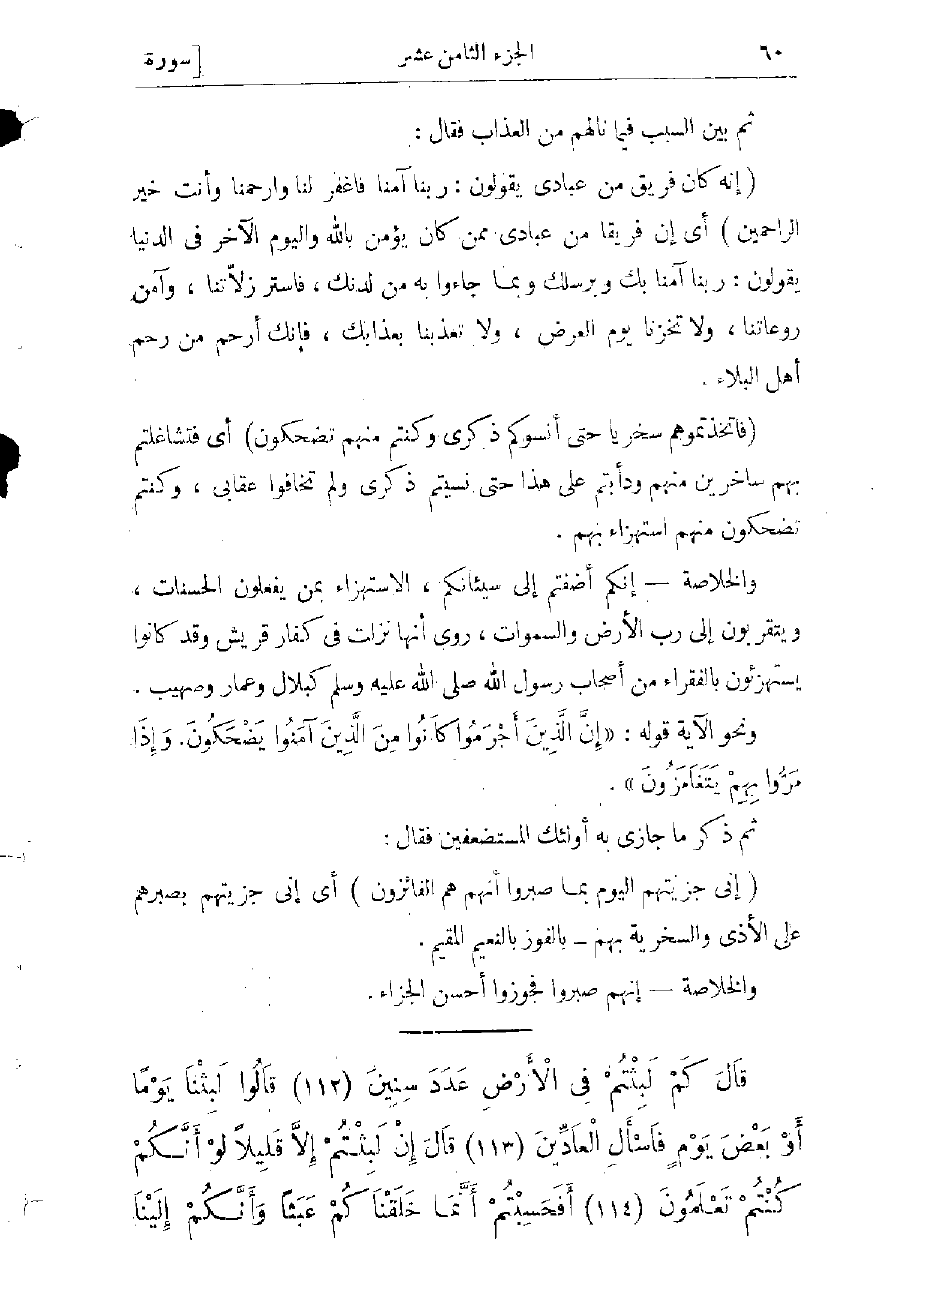 ٦٠ الجزء الثامن عشر [سورة
ثم بين السبب فيما نالهم من العذاب فقال :
( إنه كان فريق من عبادى يقولون : ربنا آمنا فاغفر لنا وارحمنا وأنت خير
الراحمين ) أى إن فريقا من عبادى ممن كان يؤمن بالله واليوم الآخر فى الدنيا
يقولون : ربنا آمنا بك وبرسلك وبما جاءوا به من لدنك ، فاستر زلاّتنا ، وآمن
روعاتنا ، ولا تخزنا يوم العرض ، ولا تعذبنا بعذابك ، فإنك أرحم من رحم
أهل البلاء .
(فاتخذتموهم سخريا حتى أنسوكم ذكرى وكنتم منهم تضحكون) أى فتشاغلتم
بهم ساخرين منهم ودأبتم على هذا حتى نسيتم ذكرى ولم تخافوا عقابى ، وكنتم
تضحكون منهم استهزاء بهم .
والخلاصة — إنكم أضفتم إلى سيئاتكم ، الاستهزاء بمن يفعلون الحسنات ،
ويتقربون إلى رب الأرض والسموات ، روى أنها نزلت فى كفار قريش وقد كانوا
يستهزئون بالفقراء من أصحاب رسول الله صلى الله عليه وسلم كبلال وعمار وصهيب .
ونحو الآية قوله : «إِنَّ الَّذِينَ أَجْرَمُوا كَانُوا مِنَ الَّذِينَ آمَنُوا يَضْحَكُونَ. وَإِذَا
مَرُّوا بِهِمْ يَتَغَامَزُونَ» .
ثم ذكر ما جازى به أولئك المستضعفين فقال :
( إنى جزيتهم اليوم بما صبروا أنهم هم الفائزون ) أى إنى جزيتهم بصبرهم
على الأذى والسخرية بهم – بالفوز بالنعيم المقيم .
والخلاصة — إنهم صبروا فجوزوا أحسن الجزاء .
قَالَ كَمْ لَبِثْتُمْ فِى الْأَرْضِ عَدَدَ سِنِينَ (١١٢) قَالُوا لَبِثْنَا يَوْمًا
أَوْ بَعْضَ يَوْمٍ فَاسْأَلِ الْعَادِّينَ (١١٣) قَالَ إِنْ لَبِثْتُمْ إِلاَّ قَلِيلاً لَوْ أَنَّكُمْ
كُنْتُمْ تَعْلَمُونَ (١١٤) أَفَحَسِبْتُمْ أَنَّمَا خَلَقْنَاكُمْ عَبَثًا وَأَنَّكُمْ إِلَيْنَا